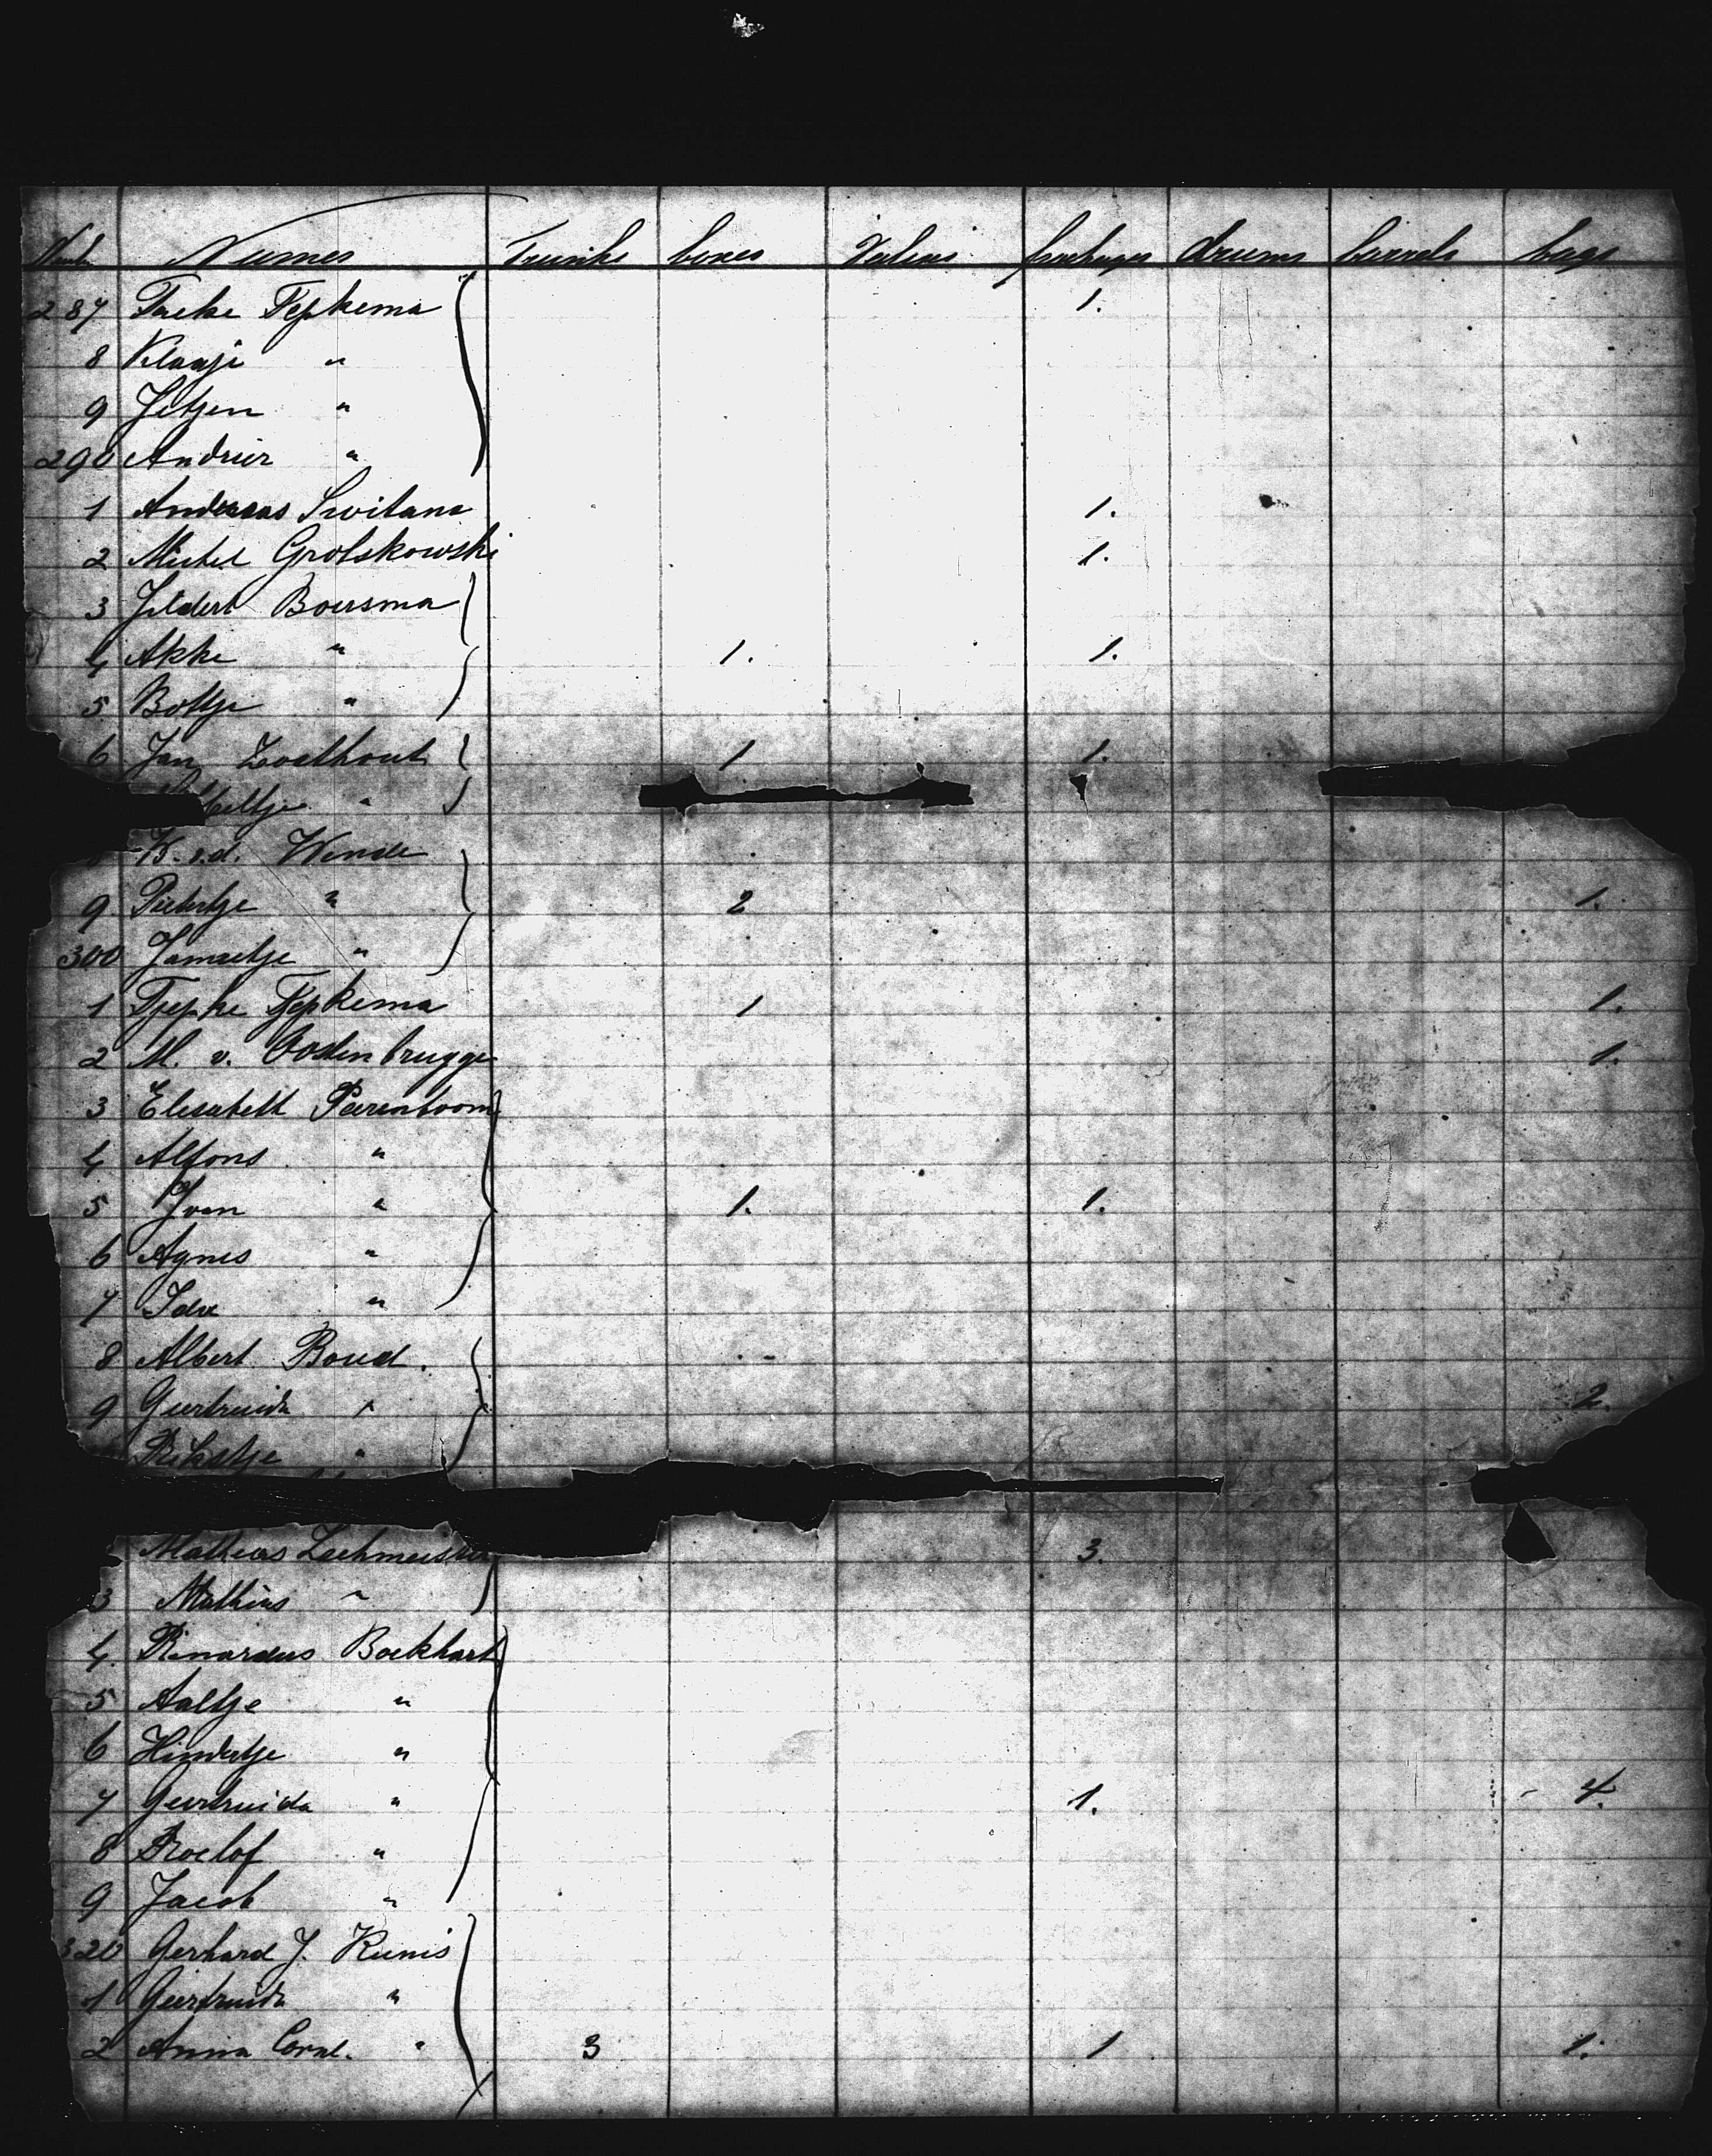 Names Trunks boxes Valises packages drums barrels bags
287 Tjepkema 1.
8 Klaasje "
9 Jetzen "
290 Andries "
1 Andreas Switana 1.
2 Michel Grobskowski 1.
3 Jildert Boersma
4 Akke " 1. 1.
5 Bottje "
6 Jan Zoethout 1 1.
"
K. v.d. Wende
9 Pietertje " 2 1.
300 "
1 Tjepke Tjepkema 1 1.
2 M. v. Oostenbrugge 1.
3 Elisabeth Peerenboom
4 Alfons "
5 Yvon " 1. 1.
6 Agnes "
7 Ida "
8 Albert Boud.
9 Geertruida " 2.
Rikstje "
Mathias Zechmeister 3.
3 Mathias "
4. Rinardus Boekhart
5 Aaltje "
6 Hindertje "
7 Geertruida " 1. 4.
8 Roelof "
9 Jacob "
320 Gerhard J. Kunis
1 Geertruida "
2 Anna Corn. " 3 1 1.